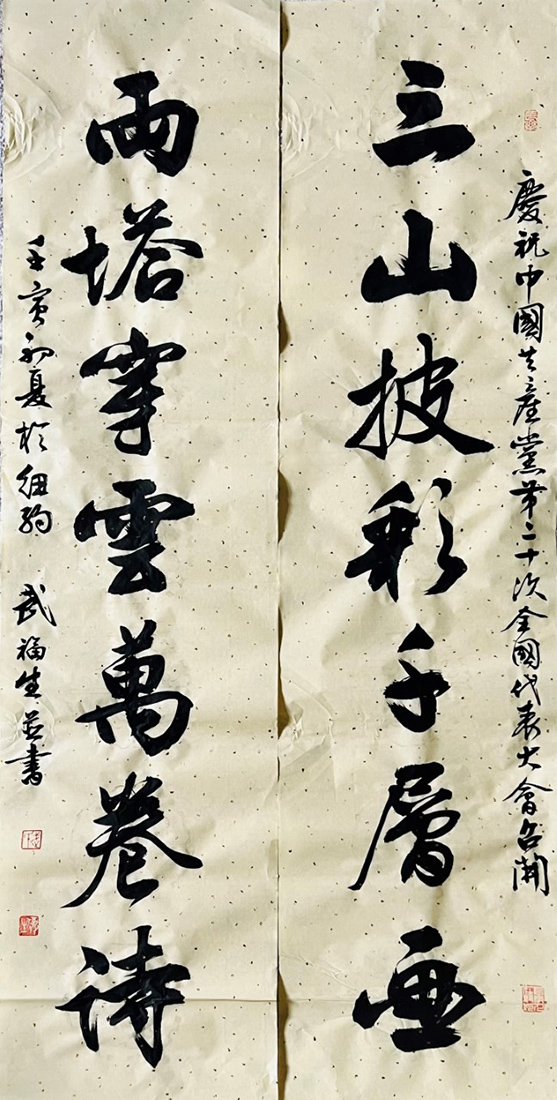 慶祝中國共產黨第二十次全國代表大會召開
三山披彩千層画
兩塔穿雲萬卷詩
壬寅初夏於紐約
武福生並書